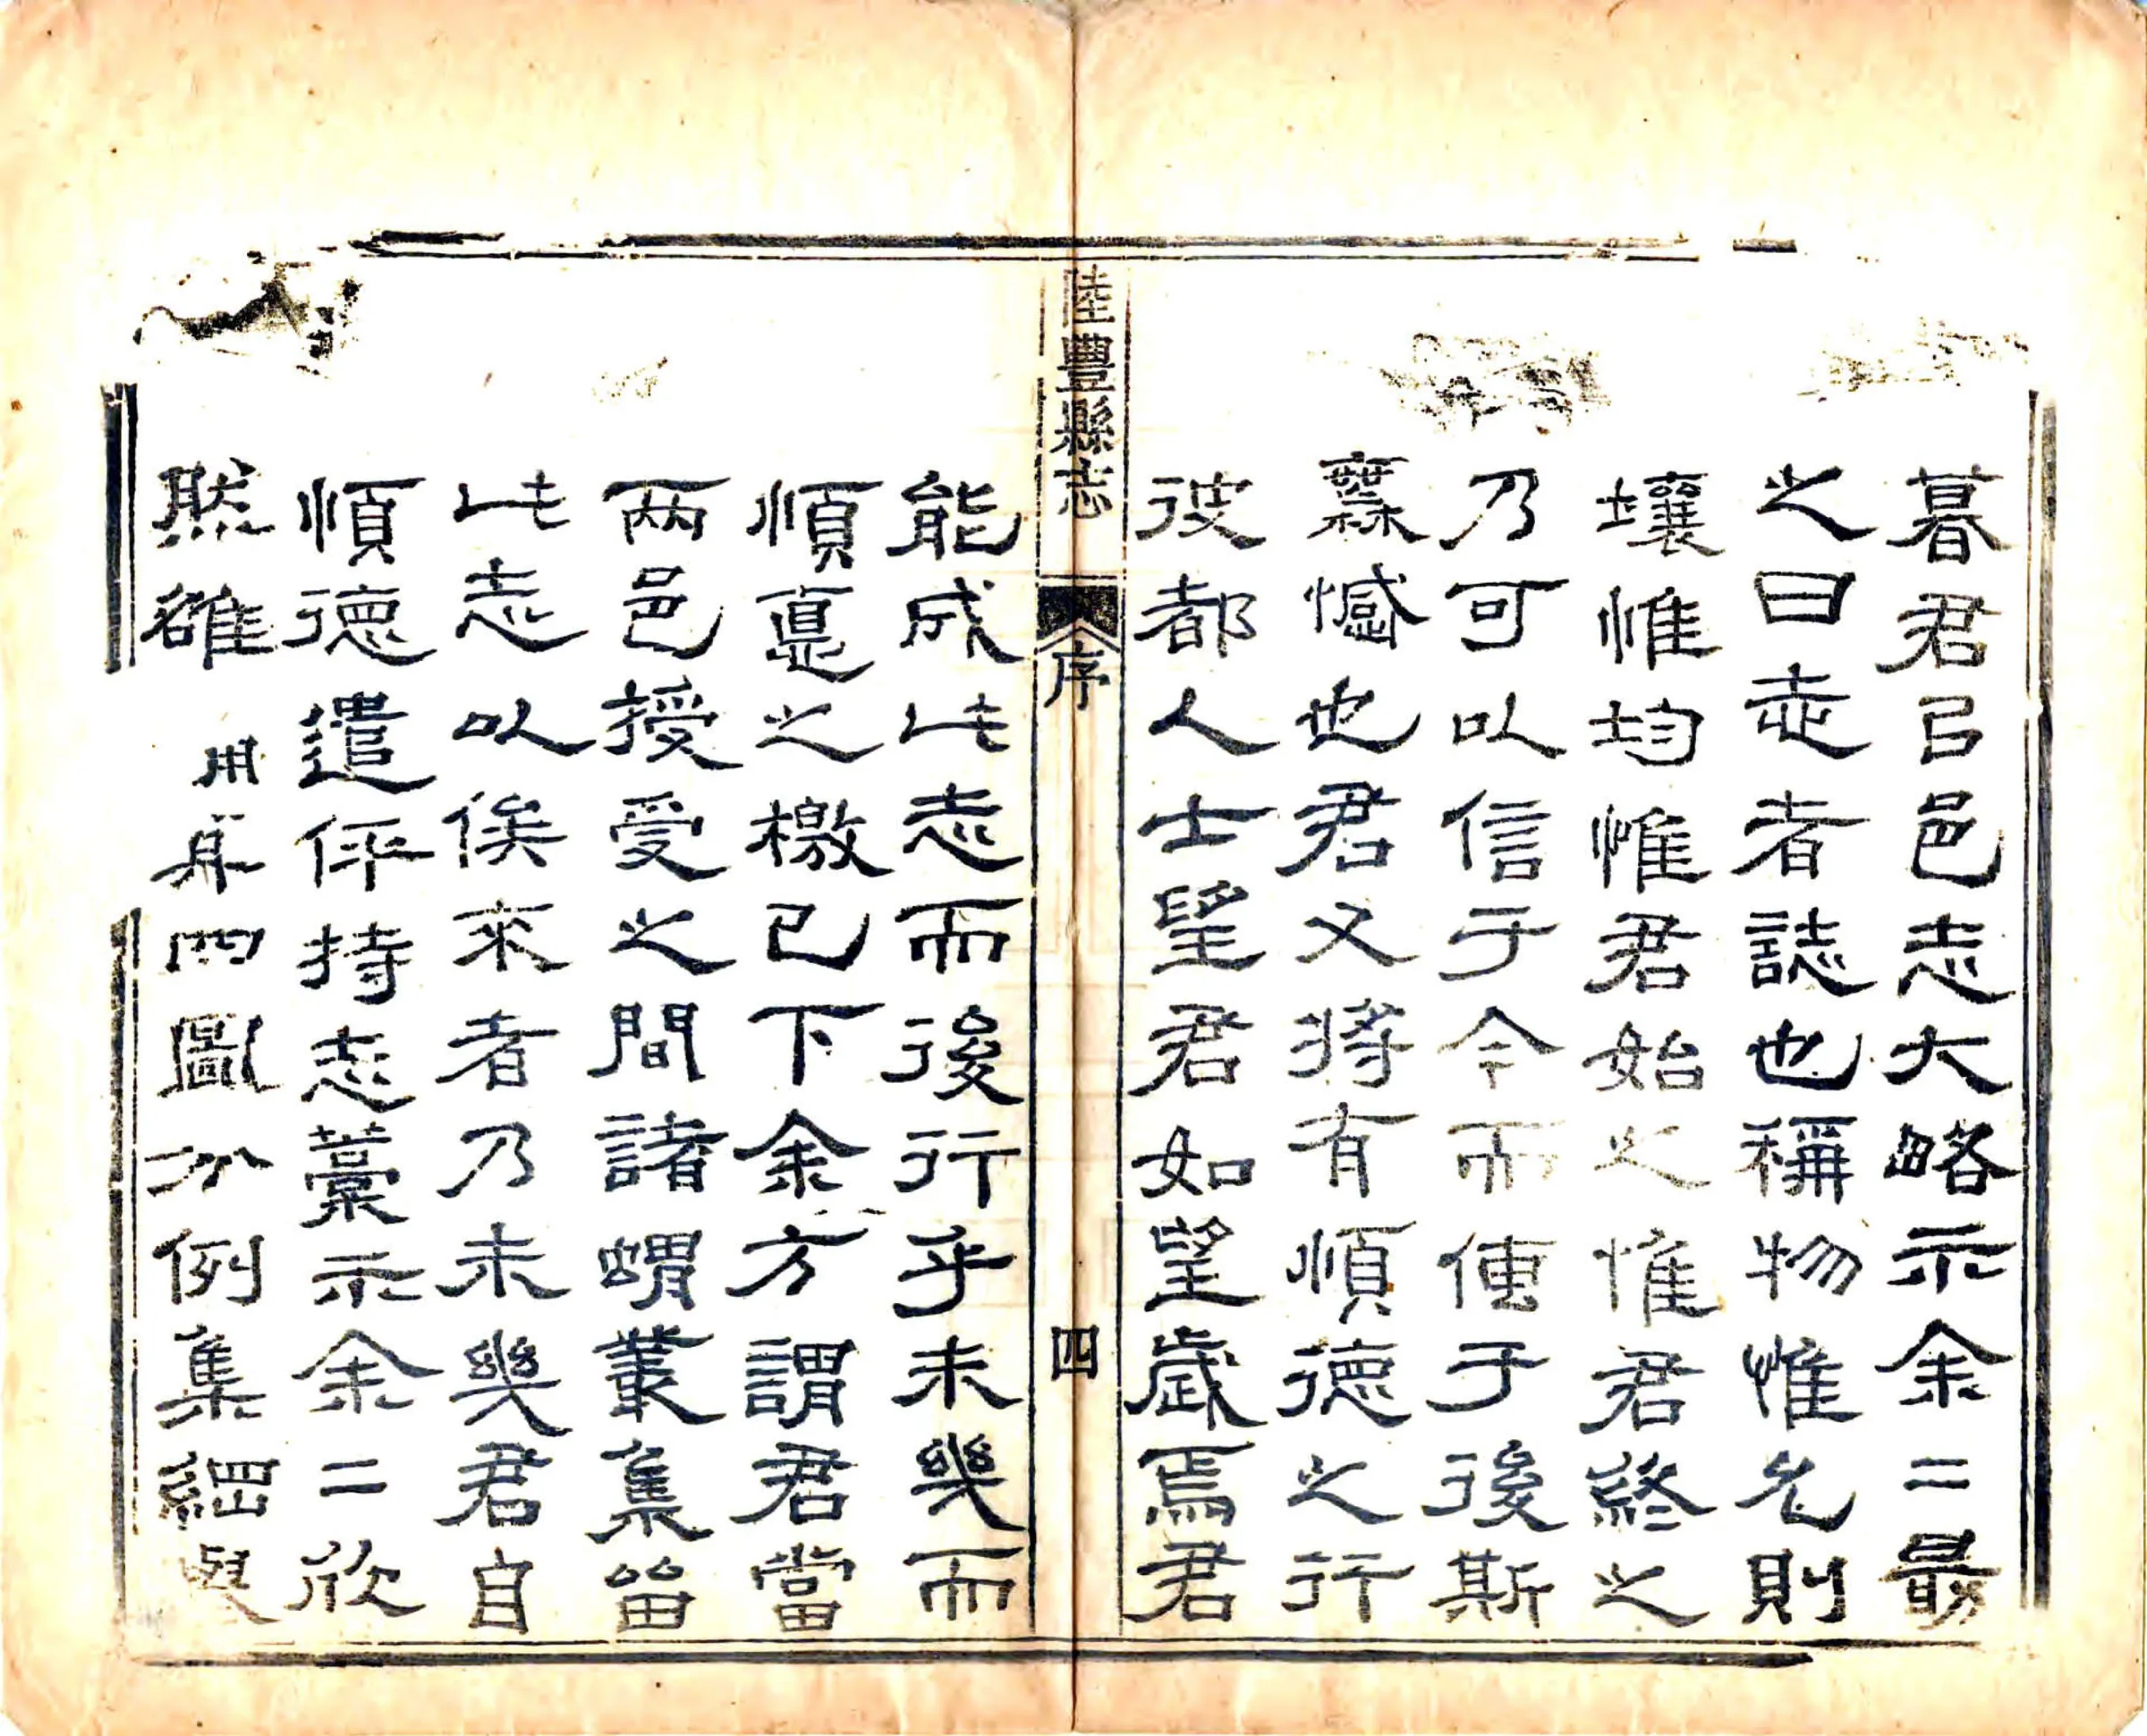 暮君㠯邑志大略示余二最
之曰志者誌也稱物惟允則
壤惟均惟君始之惟君終之
乃可以信于今而傳于後斯
憾也君又將有順德之行
彼都人士望君如望歲焉君
陸豐縣志
序
四
能成此志而後行乎未幾而
順悳之檄已下余方謂君當
兩邑授受之間諸蝟叢集留
此志以俟來者乃未幾君自
順德遣伻持志藁示余二欣
然雒用舟四圖分例集綱